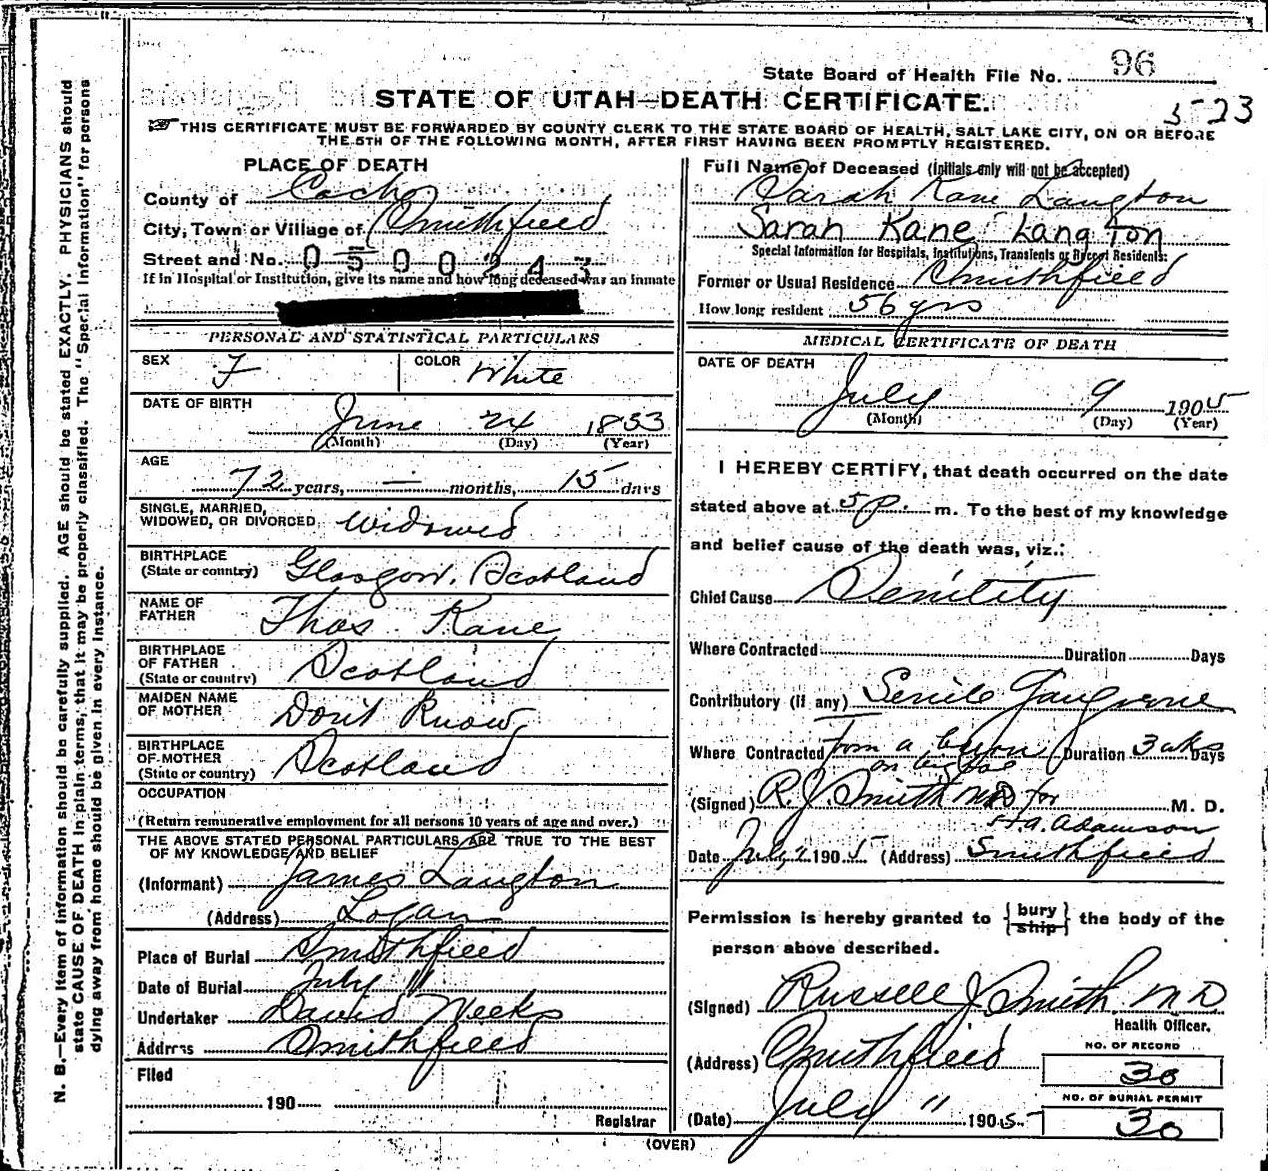 State Board of Health File No. 96
STATE OF UTAH—DEATH CERTIFICATE.
3-23
THIS CERTIFICATE MUST BE FORWARDED BY COUNTY CLERK TO THE STATE BOARD OF HEALTH, SALT LAKE CITY, ON OR BEFORE
THE 5TH OF THE FOLLOWING MONTH, AFTER FIRST HAVING BEEN PROMPTLY REGISTERED.
PLACE OF DEATH
County of Cache
City, Town or Village of Smithfield
Street and No. 0500243
If in Hospital or Institution, give its name and how long deceased was an inmate
PERSONAL AND STATISTICAL PARTICULARS
SEX F COLOR White
DATE OF BIRTH
June 24 1833
(Month) (Day) (Year)
AGE
72 years, — months, 15 days
SINGLE, MARRIED,
WIDOWED, OR DIVORCED Widowed
BIRTHPLACE
(State or country) Glasgow. Scotland
NAME OF
FATHER Thos. Kane
BIRTHPLACE
OF FATHER
(State or country) Scotland
MAIDEN NAME
OF MOTHER Dont Know
BIRTHPLACE
OF MOTHER
(State or country) Scotland
OCCUPATION
(Return remunerative employment for all persons 10 years of age and over.)
THE ABOVE STATED PERSONAL PARTICULARS ARE TRUE TO THE BEST
OF MY KNOWLEDGE AND BELIEF
(Informant) James Langton
(Address) Logan
Place of Burial Smithfield
Date of Burial July 11
Undertaker David Weeks
Address Smithfield
Filed
190
Registrar
Full Name of Deceased (Initials only will not be accepted)
Sarah Kane Langton
Sarah Kane Langton
Special Information for Hospitals, Institutions, Transients or Recent Residents:
Former or Usual Residence Smithfield
How long resident 56 yrs
MEDICAL CERTIFICATE OF DEATH
DATE OF DEATH
July 9 1905
(Month) (Day) (Year)
I HEREBY CERTIFY, that death occurred on the date
stated above at 5 p. m. To the best of my knowledge
and belief cause of the death was, viz.:
Chief Cause Senility
Where Contracted Duration Days
Contributory (if any) Senile Gangrene
Where Contracted from a burn Duration 3 wks Days
on big toe
(Signed) R. J. Smith MD for M. D.
Adamson
Date July 1905 (Address) Smithfield
Permission is hereby granted to {bury ship} the body of the
person above described.
(Signed) Russell J Smith, M D
Health Officer.
(Address) Smithfield
NO. OF RECORD
30
(Date) July 11 1905
NO. OF BURIAL PERMIT
30
(OVER)
N. B.—Every item of information should be carefully supplied. AGE should be stated EXACTLY. PHYSICIANS should
state CAUSE OF DEATH in plain terms, that it may be properly classified. The "Special Information" for persons
dying away from home should be given in every instance.